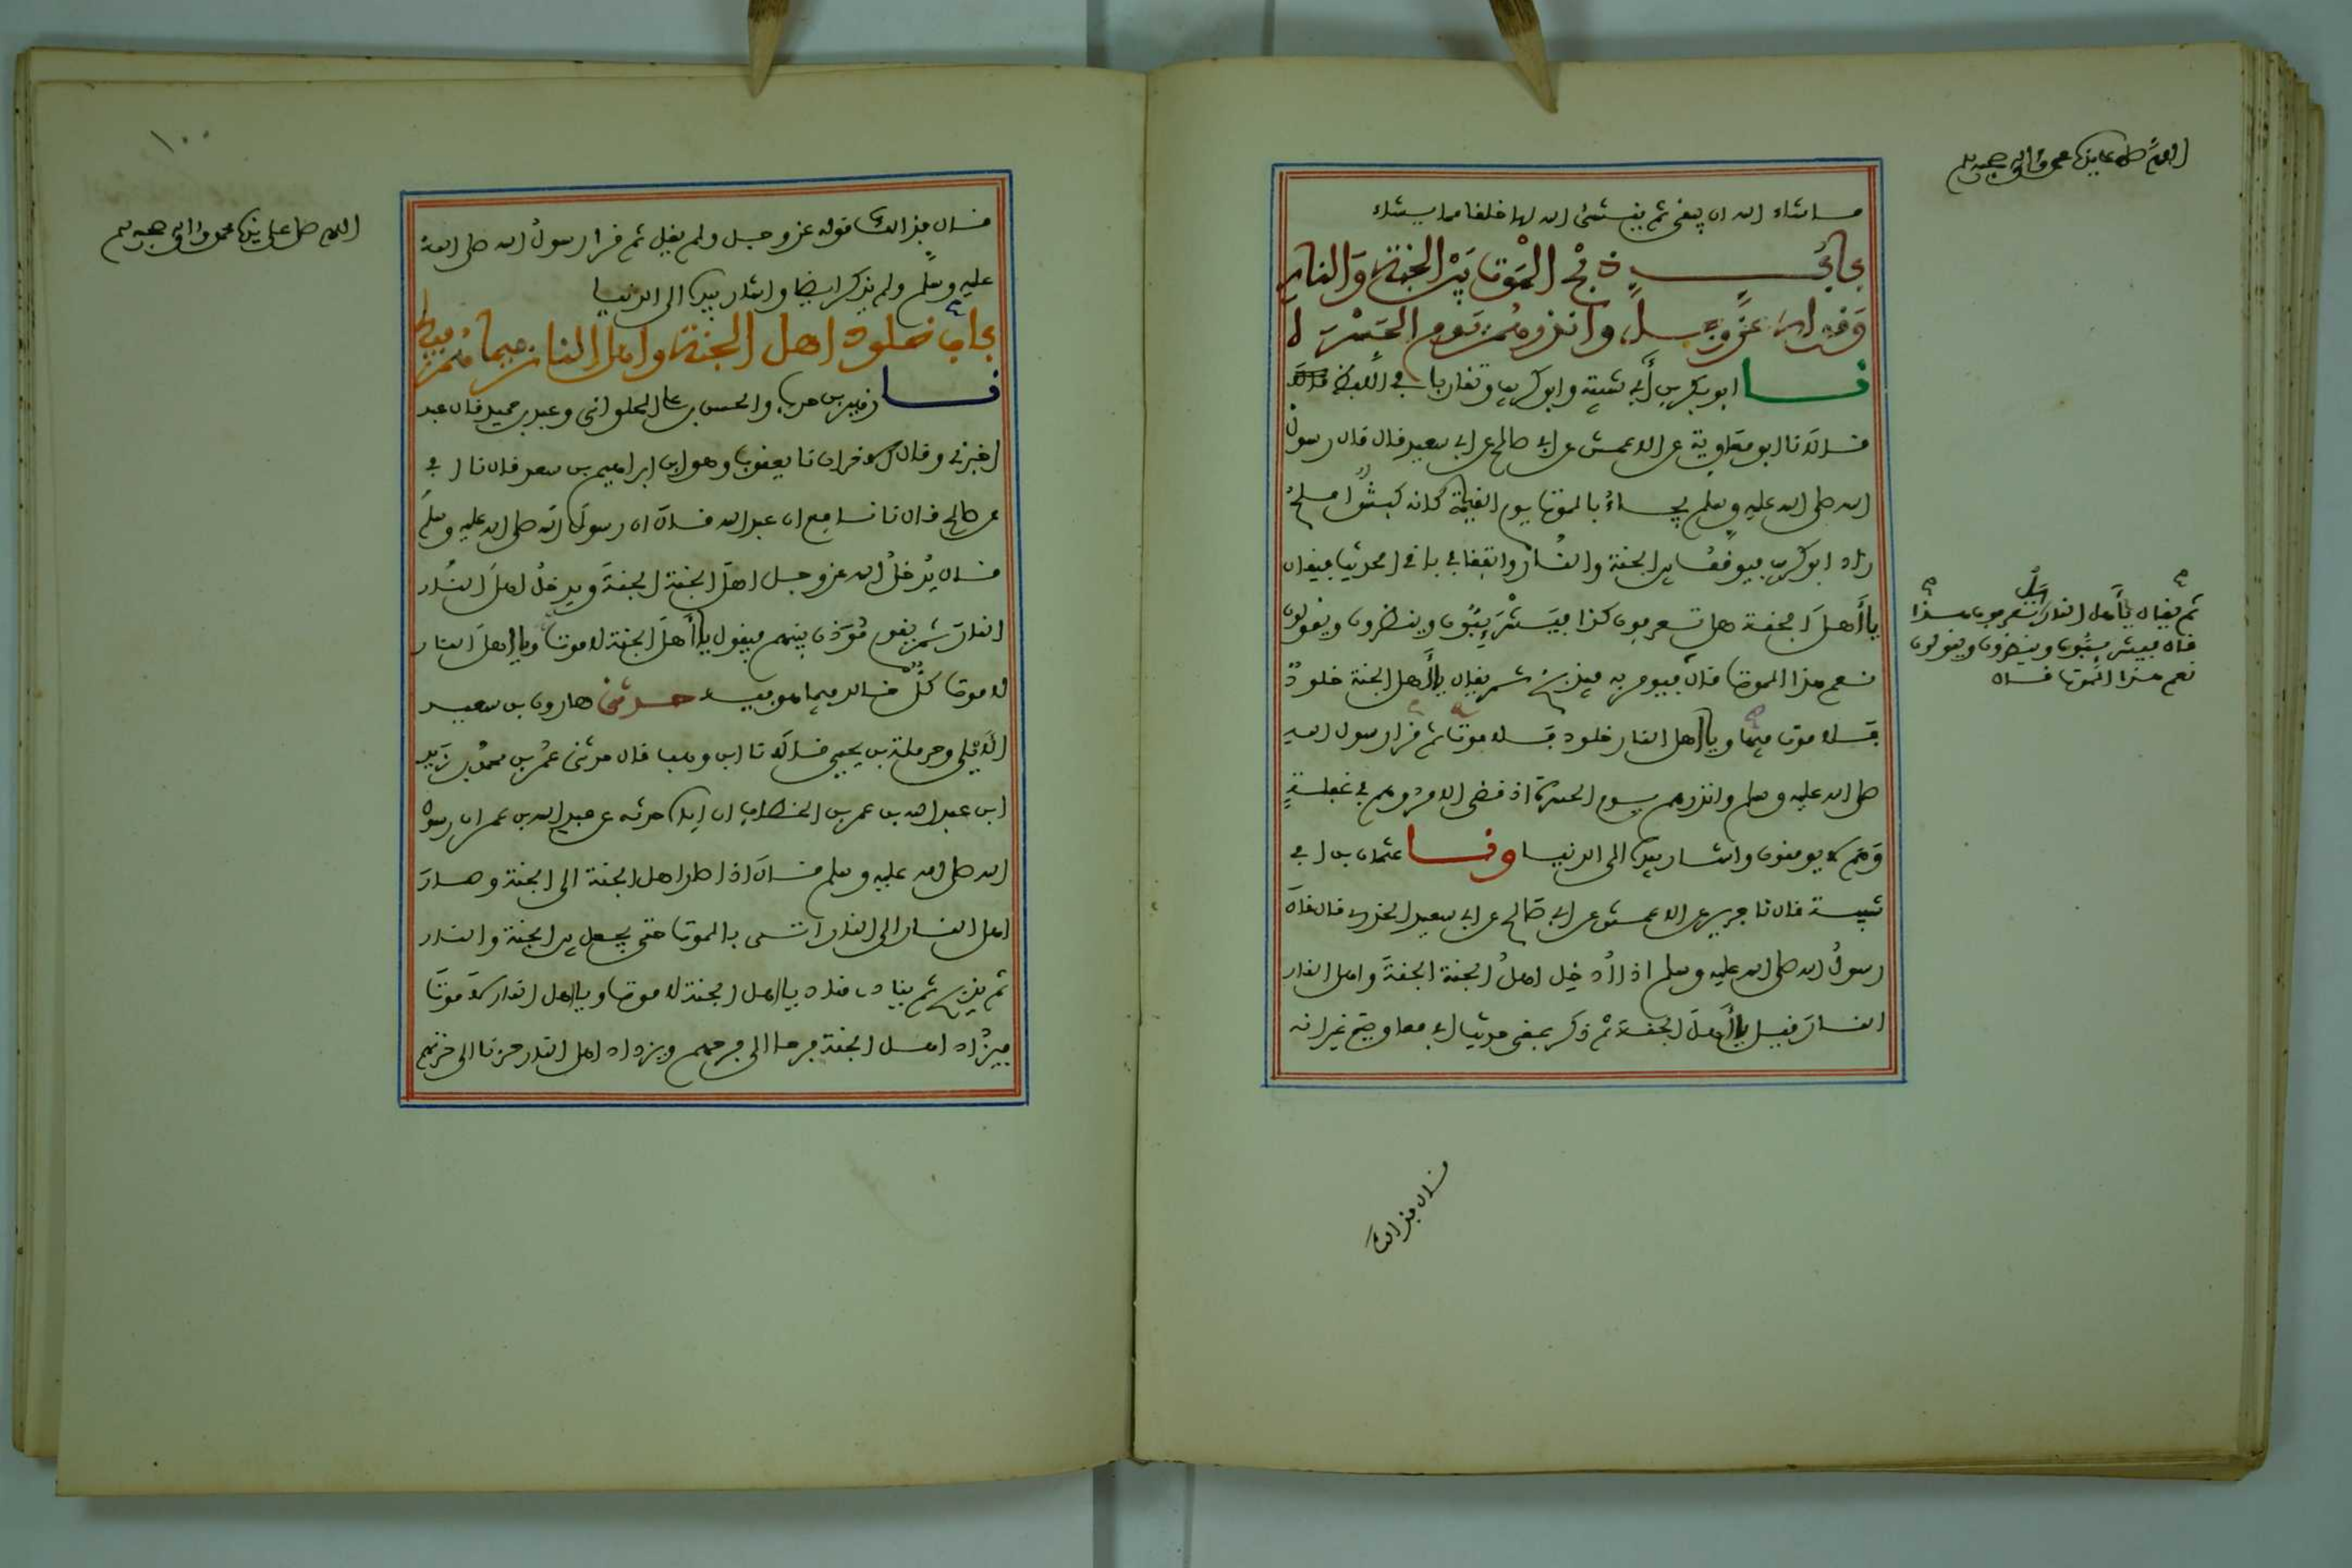 اللهم صل على نبيك محمد واله وصحبه وسلم
ما شاء الله ان يبقى ثم ينشئ الله لها خلقا مما يشاء
باب ذبح الموت بين الجنة والنار
وقوله عز وجل وانذرهم يوم الحسرة
نا ابو بكر بن أبي شيبة وابو كريب وتقاربا في اللفظ
قالا نا ابو معاوية عن الاعمش عن ابي صالح عن ابي سعيد قال قال رسول
الله صلى الله عليه وسلم يجاء بالموت يوم القيمة كانه كبش املح
زاد ابو كريب فيوقف بين الجنة والنار واتفقا في باقي الحديث فيقال
يا أهل الجنة هل تعرفون هذا فيشرئبون وينظرون ويقولون
نعم هذا الموت قال فيومر به فيذبح ثم يقال يا أهل الجنة خلود
فلا موت فيها ويا أهل النار خلود فلا موت ثم قرا رسول الله
صلى الله عليه وسلم وانذرهم يوم الحسرة اذ قضي الامر وهم في غفلة
وهم لا يومنون واشار بيده الى الدنيا ونا عثمان بن ابي
شيبة قال نا جرير عن الاعمش عن ابي صالح عن ابي سعيد الخدري قال قال
رسول الله صلى الله عليه وسلم اذا أدخل اهل الجنة الجنة واهل النار
النار قيل يا أهل الجنة ثم ذكر بمعنى حديث ابي معاوية غير انه
ثم يقال يا أهل النار هل تعرفون هذا
قال فيشرئبون وينظرون ويقولون
نعم هذا الموت قال
قال فذلك
١٠٠
اللهم صل على نبيك محمد واله وصحبه وسلم
قال فذلك قوله عز وجل ولم يقل ثم قرا رسول الله صلى الله
عليه وسلم ولم يذكر ايضا واشار بيده الى الدنيا
باب خلود اهل الجنة واهل النار فيما هم فيه
نا زهير بن حرب والحسن بن علي الحلواني وعبد بن حميد قال عبد
اخبرني وقال الاخران نا يعقوب وهو ابن ابراهيم بن سعد قال نا ابي
عن صالح قال نا نافع ان عبد الله قال ان رسول الله صلى الله عليه وسلم
قال يدخل الله عز وجل اهل الجنة الجنة ويدخل اهل النار
النار ثم يقوم مؤذن بينهم فيقول يا أهل الجنة لا موت ويا اهل النار
لا موت كل خالد فيما هو فيه حدثني هارون بن سعيد
الايلي وحرملة بن يحيى قالا نا ابن وهب قال حدثني عمر بن محمد بن زيد
ابن عبد الله بن عمر بن الخطاب ان اباه حدثه عن عبد الله بن عمر ان رسول
الله صلى الله عليه وسلم قال اذا صار اهل الجنة الى الجنة وصار
اهل النار الى النار اتي بالموت حتى يجعل بين الجنة والنار
ثم يذبح ثم ينادي مناد يا اهل الجنة لا موت ويا اهل النار لا موت
فيزداد اهل الجنة فرحا الى فرحهم ويزداد اهل النار حزنا الى حزنهم